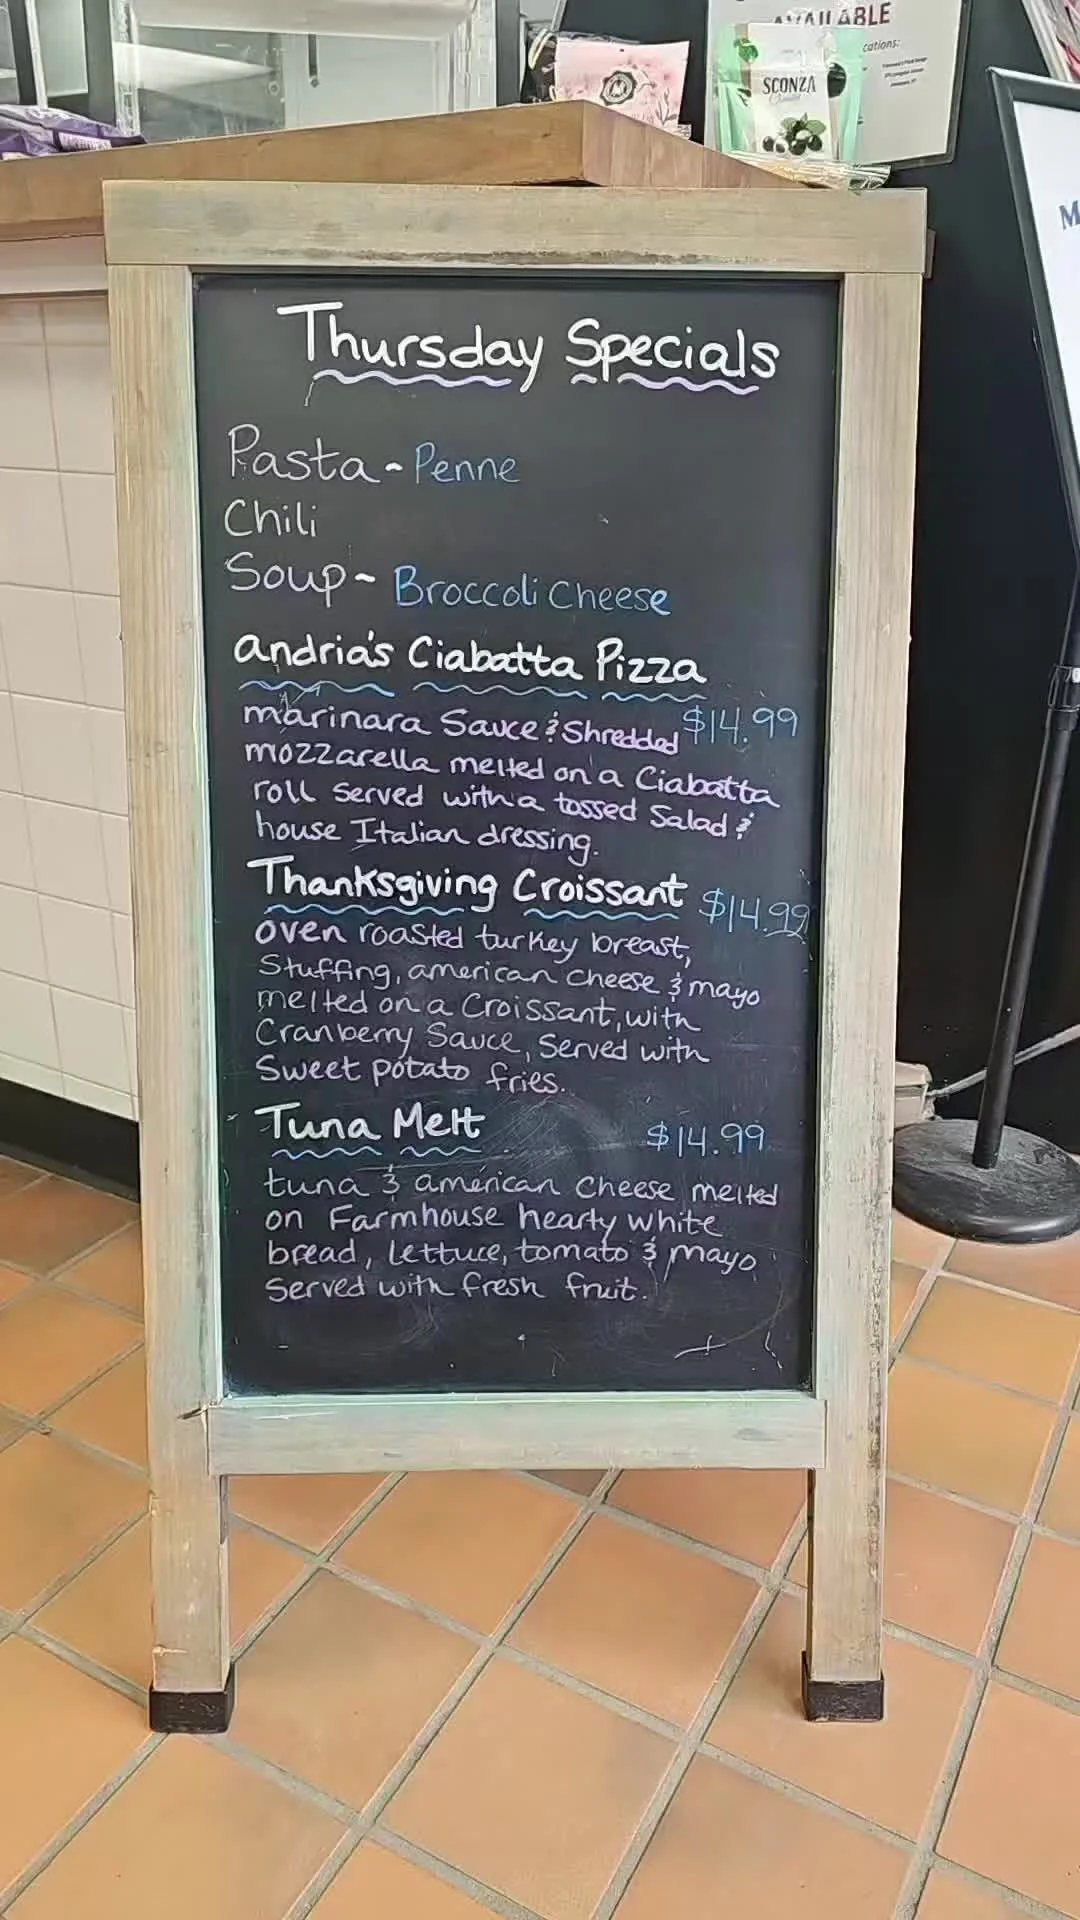 AVAILABLE
SCONZA
M
Thursday Specials
Pasta ~ Penne
Chili
Soup ~ Broccoli Cheese
andria's Ciabatta Pizza
marinara Sauce & Shredded $14.99
mozzarella melted on a Ciabatta
roll served with a tossed Salad &
house Italian dressing.
Thanksgiving Croissant $14.99
oven roasted turkey breast,
Stuffing, american cheese & mayo
melted on a Croissant, with
Cranberry Sauce, Served with
Sweet potato fries.
Tuna Melt $14.99
tuna & american cheese melted
on Farmhouse hearty white
bread, lettuce, tomato & mayo
Served with fresh fruit.